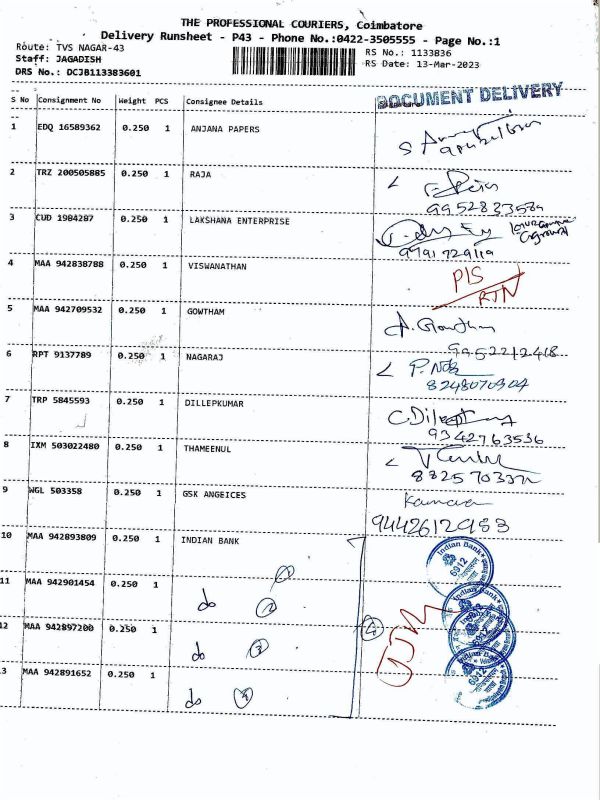 THE PROFESSIONAL COURIERS, Coimbatore
Delivery Runsheet - P43 - Phone No.:0422-3505555 - Page No.:1
Route: TVS NAGAR-43 RS No.: 1133836
Staff: JAGADISH RS Date: 13-Mar-2023
DRS No.: DCJB113383601
DOCUMENT DELIVERY
S No Consignment No Weight PCS Consignee Details
1 EDQ 16589362 0.250 1 ANJANA PAPERS
2 TRZ 200505885 0.250 1 RAJA
3 CUD 1984287 0.250 1 LAKSHANA ENTERPRISE
9791729119
4 MAA 942838788 0.250 1 VISWANATHAN
PIS
RTN
5 MAA 942709532 0.250 1 GOWTHAM
9952212418
6 RPT 9137789 0.250 1 NAGARAJ
8248070904
7 TRP 5845593 0.250 1 DILLEPKUMAR
9342763536
8 IXM 503022480 0.250 1 THAMEENUL
9 WGL 503358 0.250 1 GSK ANGEICES
9442612983
10 MAA 942893809 0.250 1 INDIAN BANK
Indian Bank
6912
1
11 MAA 942901454 0.250 1
do 2
Indian Bank
12 MAA 942897200 0.250 1
do 3
4
6912
13 MAA 942891652 0.250 1
do 4